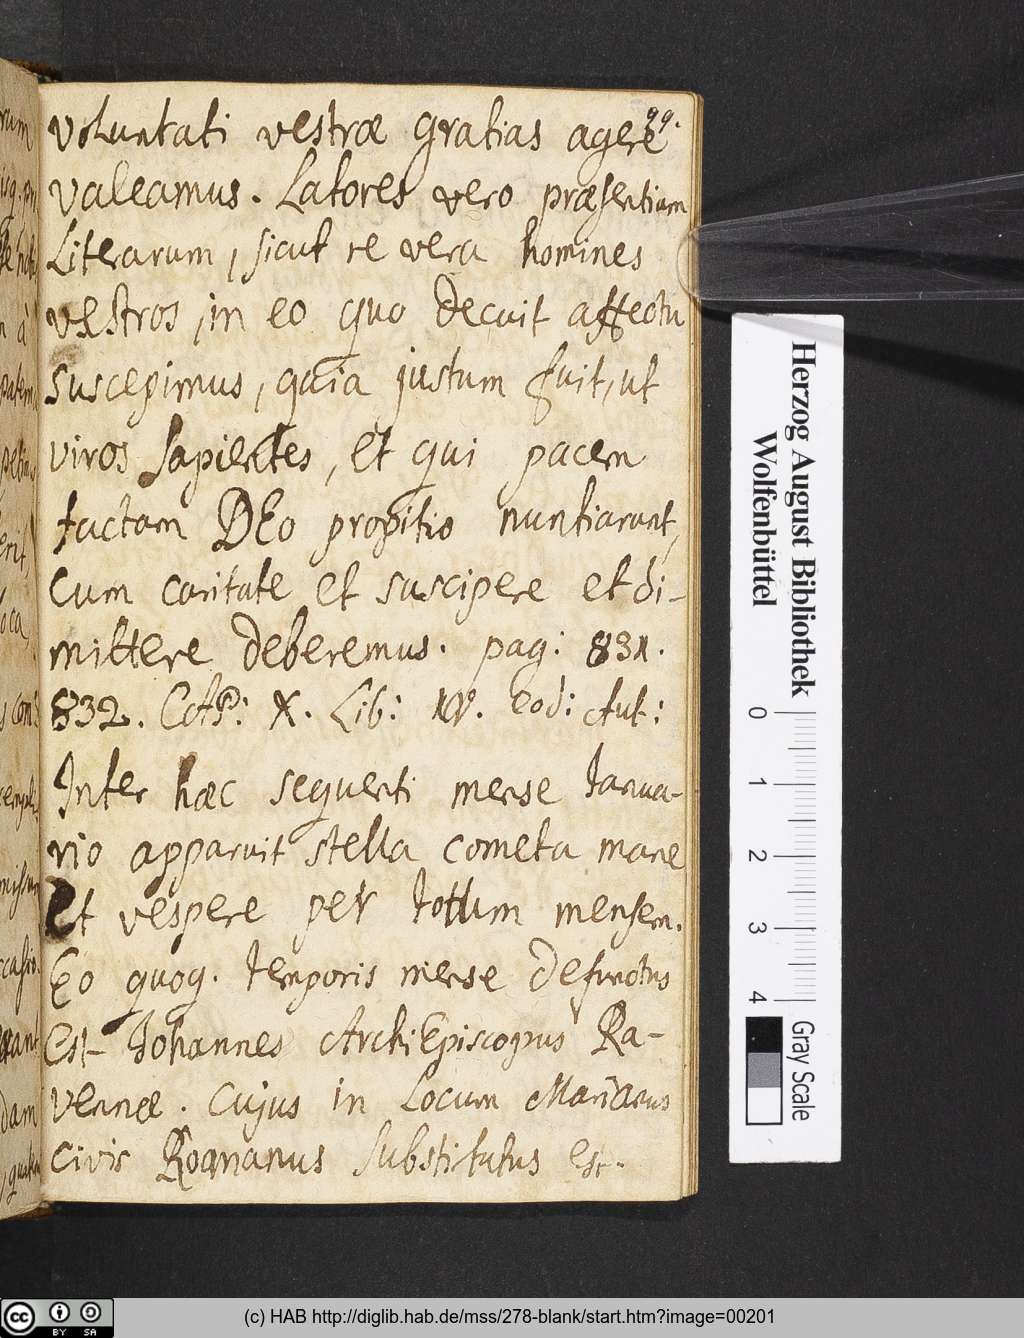 99.
voluntati vestræ gratias agere
valeamus. Latores vero præsentium
Literarum, sicut re vera homines
vestros, in eo quo decuit affectu
suscepimus, quia justum fuit, ut
viros sapientes, et qui pacem
factam DEo propitio nuntiarunt,
cum caritate et suscipere et di-
mittere deberemus. pag: 831.
832. X. Lib: IV. eod: Aut:
Inter hæc sequenti mense Janua-
rio apparuit stella cometa mane
Et vespere per tottum mensem.
Eo quoq. temporis mense defunctus
Est Johannes ArchiEpiscopus Ra-
vennæ. Cujus in Locum Marianus
civis Romanus substitutus est.
Herzog August Bibliothek
Wolfenbüttel
0 1 2 3 4
Gray Scale
cc BY SA
(c) HAB http://diglib.hab.de/mss/278-blank/start.htm?image=00201